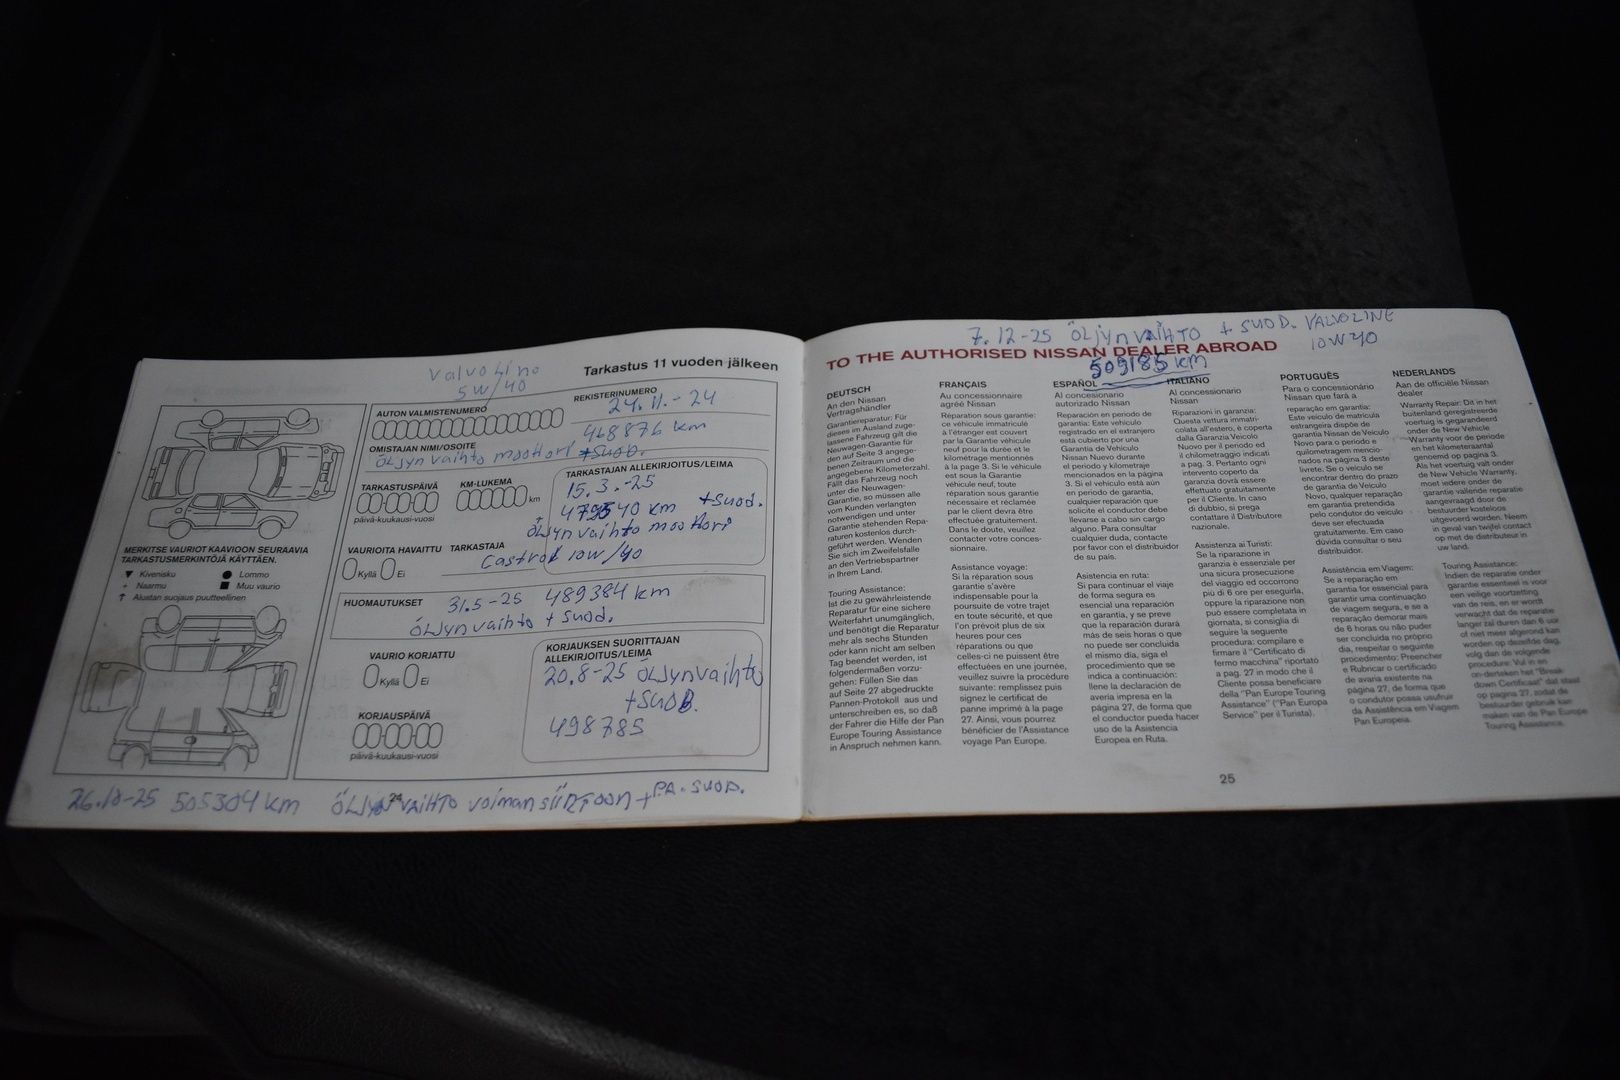 Valvoline
5W/40
Tarkastus 11 vuoden jälkeen
AUTON VALMISTENUMERO
REKISTERINUMERO
24.11.-24
468876 km
OMISTAJAN NIMI/OSOITE
ÖLJyn vaihto moottori +SuoD.
TARKASTUSPÄIVÄ
päivä-kuukausi-vuosi
KM-LUKEMA
km
TARKASTAJAN ALLEKIRJOITUS/LEIMA
15.3.-25
km +Suod.
ÖLJyn vaihto moottori
VAURIOITA HAVAITTU
Kyllä Ei
TARKASTAJA
Castrol 10w/40
MERKITSE VAURIOT KAAVIOON SEURAAVIA
TARKASTUSMERKINTÖJÄ KÄYTTÄEN.
▼ Kivenisku ● Lommo
+ Naarmu ■ Muu vaurio
↑ Alustan suojaus puutteellinen
HUOMAUTUKSET
31.5-25 489384 km
ÖLJyn vaihto + Suod.
VAURIO KORJATTU
Kyllä Ei
KORJAUKSEN SUORITTAJAN
ALLEKIRJOITUS/LEIMA
20.8-25 ÖLJyn vaihto
+SuoD.
498785
KORJAUSPÄIVÄ
päivä-kuukausi-vuosi
24
26.10-25 505304 km ÖLJyn VAIHTO voiman siiRToon + PA. SUOD.
7.12-25 ÖLJyn VAIHTO + SUOD. VALVOLINE
10W40
TO THE AUTHORISED NISSAN DEALER ABROAD
509185 km
DEUTSCH
An den Nissan
Vertragshändler
Garantiereparatur: Für
dieses im Ausland zuge-
lassene Fahrzeug gilt die
Neuwagen-Garantie für
den auf Seite 3 angege-
benen Zeitraum und die
angegebene Kilometerzahl.
Fällt das Fahrzeug noch
unter die Neuwagen-
Garantie, so müssen alle
vom Kunden verlangten
notwendigen und unter
Garantie stehenden Repa-
raturen kostenlos durch-
geführt werden. Wenden
Sie sich im Zweifelsfalle
an den Vertriebspartner
in Ihrem Land.
Touring Assistance:
Ist die zu gewährleistende
Reparatur für eine sichere
Weiterfahrt unumgänglich,
und benötigt die Reparatur
mehr als sechs Stunden
oder kann nicht am selben
Tag beendet werden, ist
folgendermaßen vorzu-
gehen: Füllen Sie das
auf Seite 27 abgedruckte
Pannen-Protokoll aus und
unterschreiben es, so daß
der Fahrer die Hilfe der Pan
Europe Touring Assistance
in Anspruch nehmen kann.
FRANÇAIS
Au concessionnaire
agréé Nissan
Réparation sous garantie:
ce véhicule immatriculé
à l'étranger est couvert
par la Garantie véhicule
neuf pour la durée et le
kilométrage mentionnés
à la page 3. Si le véhicule
est sous la Garantie
véhicule neuf, toute
réparation sous garantie
nécessaire et réclamée
par le client devra être
effectuée gratuitement.
Dans le doute, veuillez
contacter votre conces-
sionnaire.
Assistance voyage:
Si la réparation sous
garantie s'avère
indispensable pour la
poursuite de votre trajet
en toute sécurité, et que
l'on prévoit plus de six
heures pour ces
réparations ou que
celles-ci ne puissent être
effectuées en une journée,
veuillez suivre la procédure
suivante: remplissez puis
signez le certificat de
panne imprimé à la page
27. Ainsi, vous pourrez
bénéficier de l'Assistance
voyage Pan Europe.
ESPAÑOL
Al concesionario
autorizado Nissan
Reparación en periodo de
garantía: Este vehículo
registrado en el extranjero
está cubierto por una
Garantía de Vehículo
Nissan Nuevo durante
el periodo y kilometraje
mencionados en la página
3. Si el vehículo está aún
en periodo de garantía,
cualquier reparación que
solicite el conductor debe
llevarse a cabo sin cargo
alguno. Para consultar
cualquier duda, contacte
por favor con el distribuidor
de su país.
Asistencia en ruta:
Si para continuar el viaje
de forma segura es
esencial una reparación
en garantía, y se prevé
que la reparación durará
más de seis horas o que
no puede ser concluida
el mismo día, siga el
procedimiento que se
indica a continuación:
llene la declaración de
avería impresa en la
página 27, de forma que
el conductor pueda hacer
uso de la Asistencia
Europea en Ruta.
ITALIANO
Al concessionario
Nissan
Riparazioni in garanzia:
Questa vettura immatri-
colata all'estero, è coperta
dalla Garanzia Veicolo
Nuovo per il periodo ed
il chilometraggio indicati
a pag. 3. Pertanto ogni
intervento coperto da
garanzia dovrà essere
effettuato gratuitamente
per il Cliente. In caso
di dubbio, si prega
contattare il Distributore
nazionale.
Assistenza ai Turisti:
Se la riparazione in
garanzia è essenziale per
una sicura prosecuzione
del viaggio ed occorrono
più di 6 ore per eseguirla,
oppure la riparazione non
può essere completata in
giornata, si consiglia di
seguire la seguente
procedura: compilare e
firmare il "Certificato di
fermo macchina" riportato
a pag. 27 in modo che il
Cliente possa beneficiare
della "Pan Europe Touring
Assistance" ("Pan Europa
Service" per il Turista).
PORTUGUÊS
Para o concessionário
Nissan que fará a
reparação em garantia:
Este veículo de matrícula
estrangeira dispõe de
garantia Nissan de Veículo
Novo para o período e
quilometragem mencio-
nados na página 3 deste
livrete. Se o veículo se
encontrar dentro do prazo
de garantia de Veículo
Novo, qualquer reparação
em garantia pretendida
pelo condutor do veículo
deve ser efectuada
gratuitamente. Em caso
de dúvida, consultar o seu
distribuidor.
Assistência em Viagem:
Se a reparação em
garantia for essencial para
garantir uma continuação
de viagem segura, e se a
reparação demorar mais
de 6 horas ou não puder
ser concluída no próprio
dia, respeitar o seguinte
procedimento: Preencher
e Rubricar o certificado
de avaria existente na
página 27, de forma que
o condutor possa usufruir
da Assistência em Viagem
Pan Europeia.
NEDERLANDS
Aan de officiële Nissan
dealer
Warranty Repair: Dit in het
buitenland geregistreerde
voertuig is gegarandeerd
onder de New Vehicle
Warranty voor de periode
en het kilometeraantal
genoemd op pagina 3.
Als het voertuig valt onder
de New Vehicle Warranty,
moet iedere onder de
garantie vallende reparatie
aangevraagd door de
bestuurder kosteloos
uitgevoerd worden. Neem
in geval van twijfel contact
op met de distributeur in
uw land.
Touring Assistance:
Indien de reparatie onder
garantie essentieel is voor
een veilige voortzetting
van de reis, en er wordt
verwacht dat de reparatie
langer zal duren dan 6 uur
of niet meer afgerond kan
worden op dezelfde dag,
volg dan de volgende
procedure: Vul in en
onderteken het "Break-
down Certificaat" dat staat
op pagina 27, zodat de
bestuurder gebruik kan
maken van de Pan Europe
Touring Assistance.
25